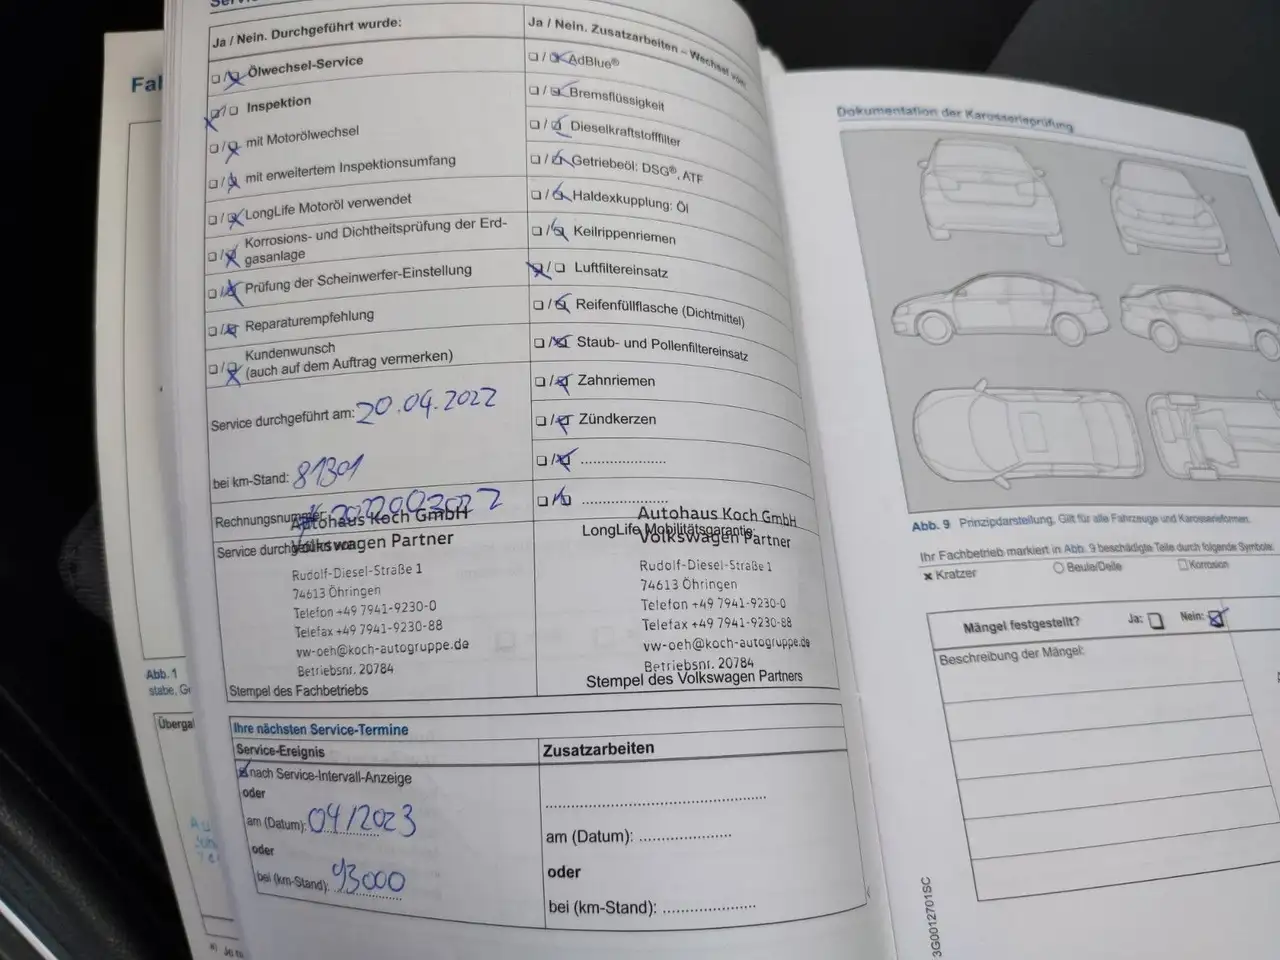 Fal
Ja / Nein. Durchgeführt wurde:
Ölwechsel-Service
Inspektion
mit Motorölwechsel
mit erweitertem Inspektionsumfang
LongLife Motoröl verwendet
Korrosions- und Dichtheitsprüfung der Erd-
gasanlage
Prüfung der Scheinwerfer-Einstellung
Reparaturempfehlung
Kundenwunsch
(auch auf dem Auftrag vermerken)
Service durchgeführt am: 20.04.2022
bei km-Stand: 81301
Rechnungsnummer
Autohaus Koch GmbH
Volkswagen Partner
Rudolf-Diesel-Straße 1
74613 Öhringen
Telefon +49 7941-9230-0
Telefax +49 7941-9230-88
vw-oeh@koch-autogruppe.de
Betriebsnr. 20784
Stempel des Fachbetriebs
Ja / Nein. Zusatzarbeiten – Wechsel von:
AdBlue®
Bremsflüssigkeit
Dieselkraftstofffilter
Getriebeöl: DSG®, ATF
Haldexkupplung: Öl
Keilrippenriemen
Luftfiltereinsatz
Reifenfüllflasche (Dichtmittel)
Staub- und Pollenfiltereinsatz
Zahnriemen
Zündkerzen
Autohaus Koch GmbH
LongLife Mobilitätsgarantie:
Volkswagen Partner
Rudolf-Diesel-Straße 1
74613 Öhringen
Telefon +49 7941-9230-0
Telefax +49 7941-9230-88
vw-oeh@koch-autogruppe.de
Betriebsnr. 20784
Stempel des Volkswagen Partners
Ihre nächsten Service-Termine
Service-Ereignis
nach Service-Intervall-Anzeige
oder
am (Datum): 04/2023
oder
bei (km-Stand): 93000
Zusatzarbeiten
am (Datum):
oder
bei (km-Stand):
Abb. 1
Dokumentation der Karosserieprüfung
Abb. 9 Prinzipdarstellung. Gilt für alle Fahrzeuge und Karosserieformen.
Ihr Fachbetrieb markiert in Abb. 9 beschädigte Teile durch folgende Symbole:
Kratzer Beule/Delle Korrosion
Mängel festgestellt? Ja: Nein:
Beschreibung der Mängel:
3G0012701SC